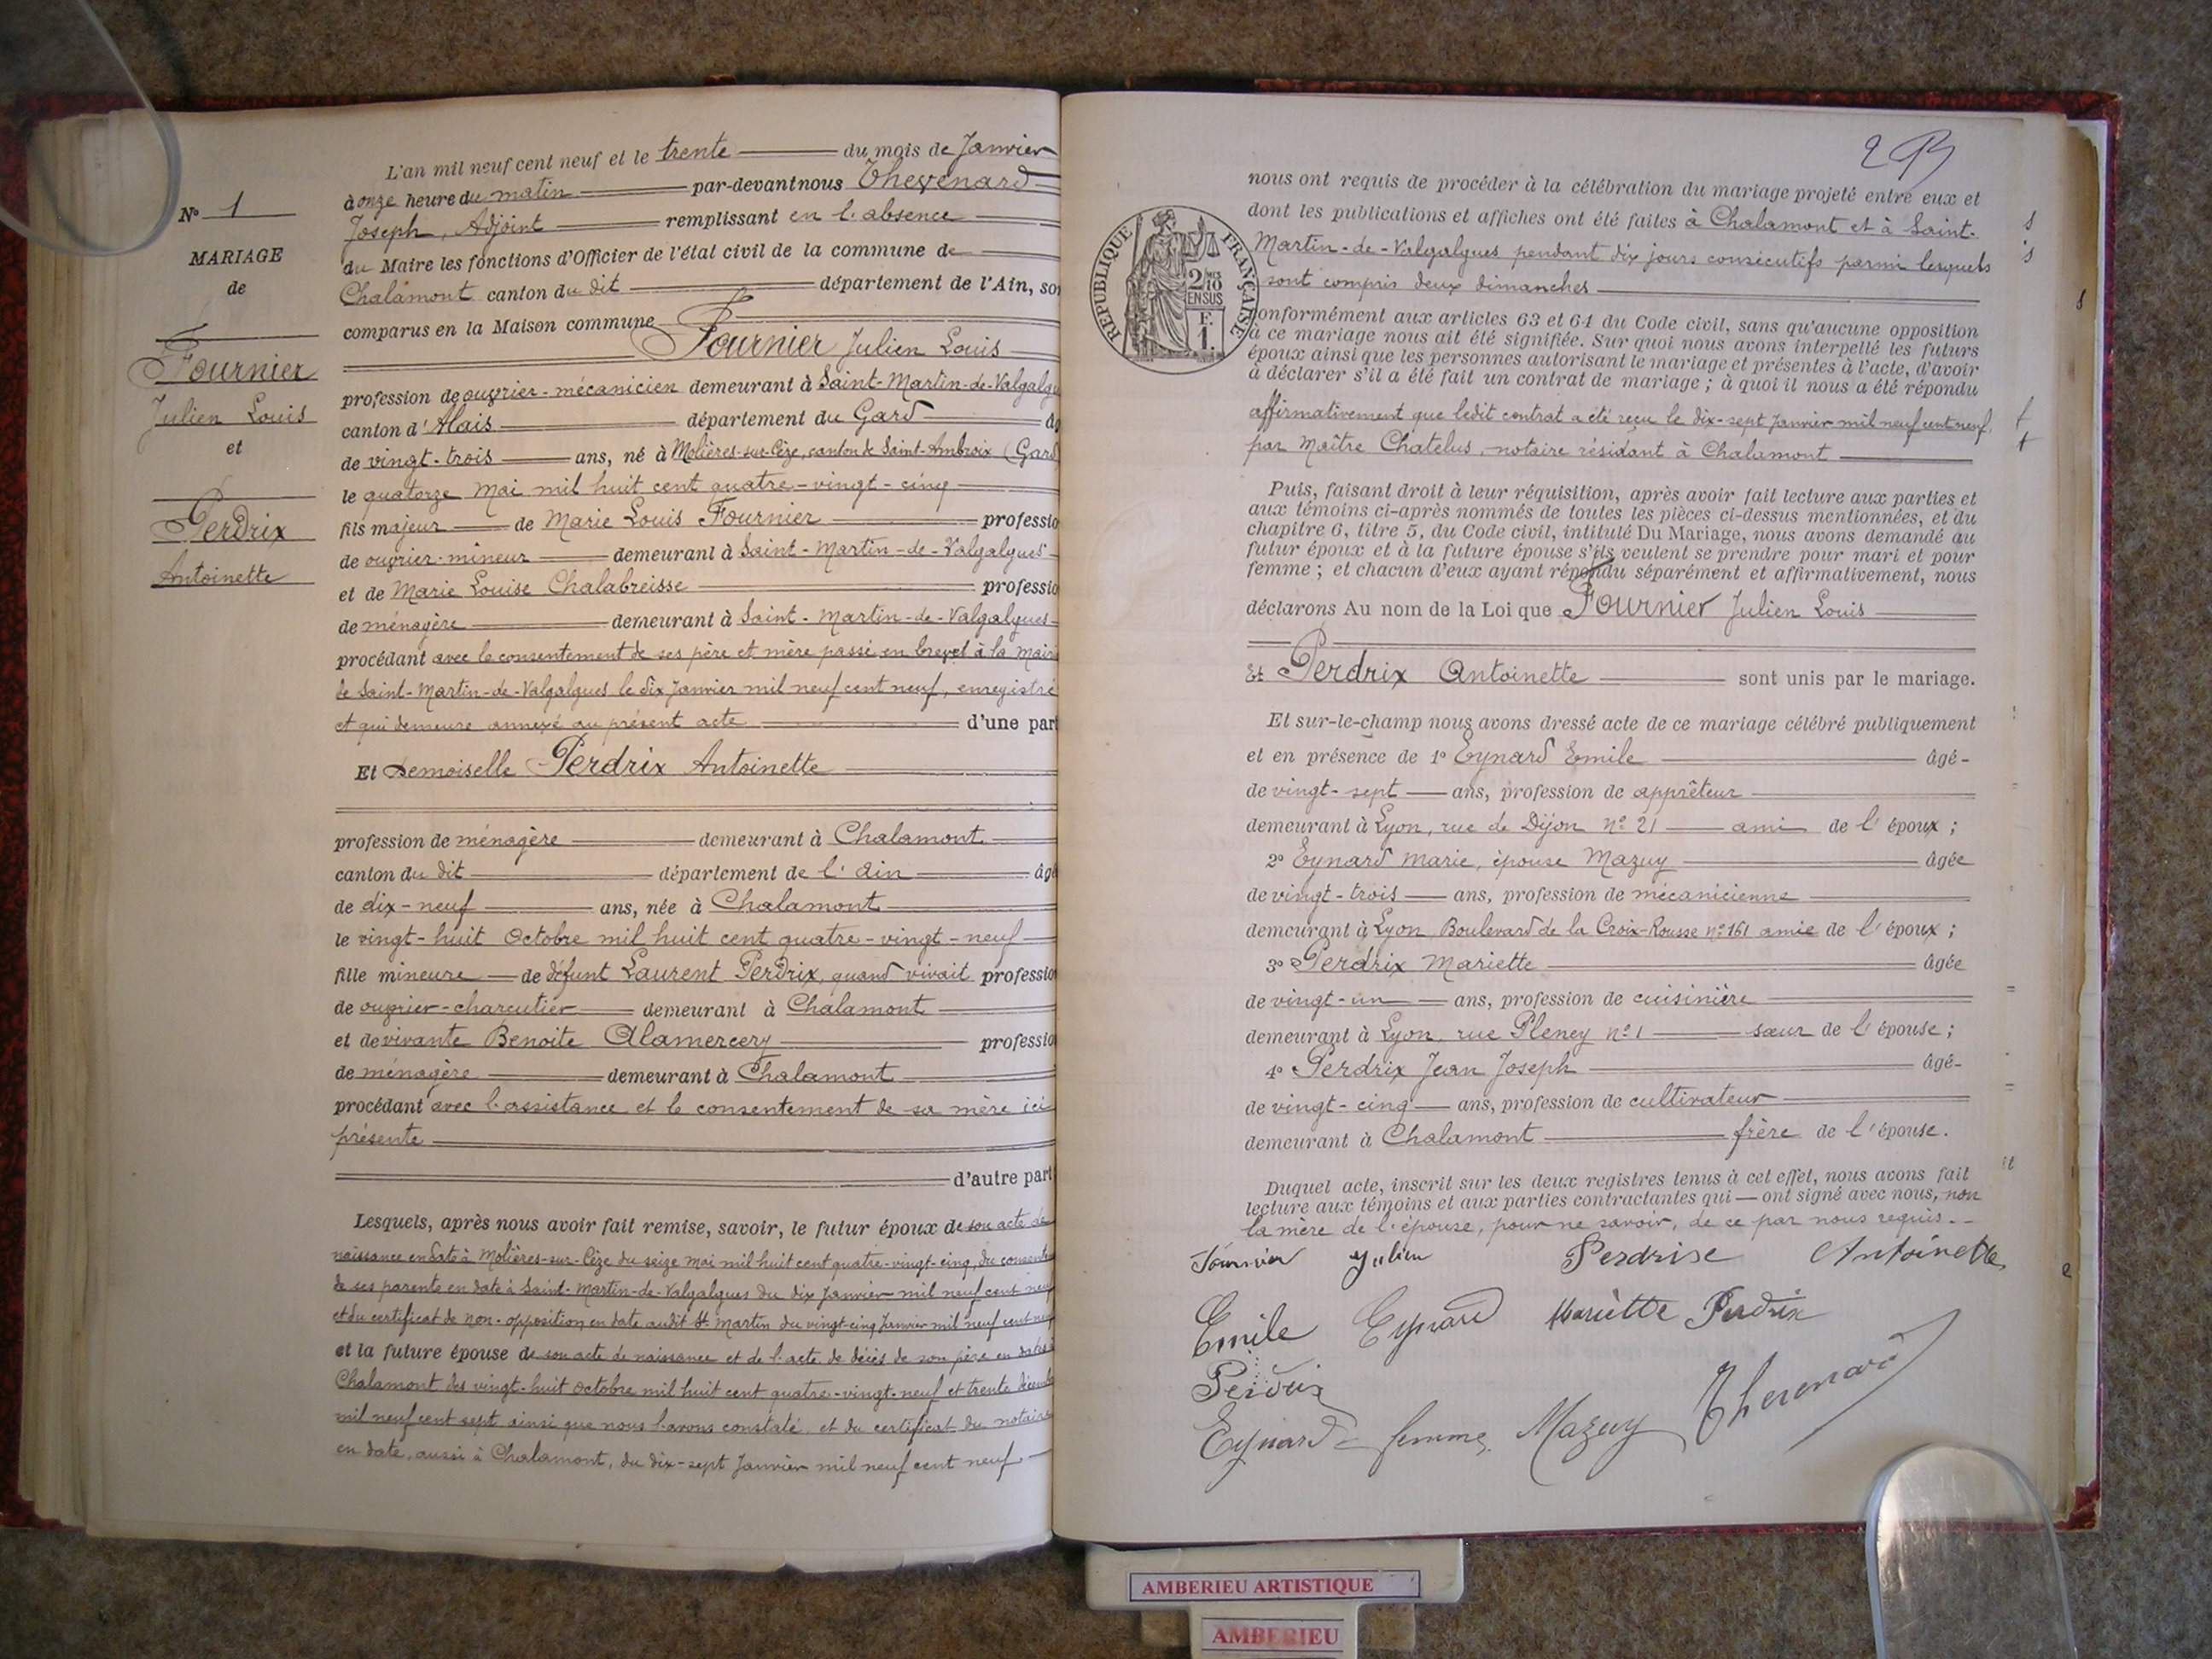 L'an mil neuf cent neuf et le trente du mois de Janvier
à onze heure du matin par-devant nous Thevenard
Joseph, Adjoint remplissant en l'absence
du Maire les fonctions d'Officier de l'état civil de la commune de
Chalamont canton du dit département de l'Ain, so
comparus en la Maison commune
Fournier Julien Louis
profession de ouvrier-mécanicien demeurant à Saint-Martin-de-Valgalgu
canton d'Alais département du Gard âg
de vingt-trois ans, né à Molières-sur-Cèze, canton de Saint-Ambroix (Gard
le quatorze Mai mil huit cent quatre-vingt-cinq
fils majeur de Marie Louis Fournier professio
de ouvrier-mineur demeurant à Saint-Martin-de-Valgalgues
et de Marie Louise Chalabreisse professio
de ménagère demeurant à Saint-Martin-de-Valgalgues
procédant avec le consentement de ses père et mère passé en brevet à la Mair
de Saint-Martin-de-Valgalgues le dix Janvier mil neuf cent neuf, enregistré
et qui demeure annexé au présent acte d'une part
Et Demoiselle Perdrix Antoinette
profession de ménagère demeurant à Chalamont
canton du dit département de l'Ain âgé
de dix-neuf ans, née à Chalamont
le vingt-huit Octobre mil huit cent quatre-vingt-neuf
fille mineure de défunt Laurent Perdrix, quand vivait professio
de ouvrier-charcutier demeurant à Chalamont
et de vivante Benoite Alamercery professio
de ménagère demeurant à Chalamont
procédant avec l'assistance et le consentement de sa mère ici
présente
d'autre part
Lesquels, après nous avoir fait remise, savoir, le futur époux de son acte de
naissance en date à Molières-sur-Cèze du seize Mai mil huit cent quatre-vingt-cinq, du consente
de ses parents en date à Saint-Martin-de-Valgalgues du dix Janvier mil neuf cent neuf
et du certificat de non-opposition en date audit St Martin du vingt-cinq Janvier mil neuf cent neuf
et la future épouse de son acte de naissance et de l'acte de décès de son père en date à
Chalamont des vingt-huit octobre mil huit cent quatre-vingt-neuf et trente décemb
mil neuf cent sept ainsi que nous l'avons constaté, et du certificat du notaire
en date, aussi à Chalamont, du dix-sept Janvier mil neuf cent neuf
N° 1
MARIAGE
de
Fournier
Julien Louis
et
Perdrix
Antoinette
2
nous ont requis de procéder à la célébration du mariage projeté entre eux et
dont les publications et affiches ont été faites à Chalamont et à Saint-
Martin-de-Valgalgues pendant dix jours consécutifs parmi lesquels
sont compris deux dimanches
RÉPUBLIQUE FRANÇAISE
2/10 ENSUS
F.
1.
onformément aux articles 63 et 64 du Code civil, sans qu'aucune opposition
à ce mariage nous ait été signifiée. Sur quoi nous avons interpellé les futurs
époux ainsi que les personnes autorisant le mariage et présentes à l'acte, d'avoir
à déclarer s'il a été fait un contrat de mariage ; à quoi il nous a été répondu
affirmativement que ledit contrat a été reçu le dix-sept Janvier mil neuf cent neuf,
par Maître Chatelus, notaire résidant à Chalamont
Puis, faisant droit à leur réquisition, après avoir fait lecture aux parties et
aux témoins ci-après nommés de toutes les pièces ci-dessus mentionnées, et du
chapitre 6, titre 5, du Code civil, intitulé Du Mariage, nous avons demandé au
futur époux et à la future épouse s'ils veulent se prendre pour mari et pour
femme ; et chacun d'eux ayant répondu séparément et affirmativement, nous
déclarons Au nom de la Loi que Fournier Julien Louis
Et Perdrix Antoinette sont unis par le mariage.
Et sur-le-champ nous avons dressé acte de ce mariage célébré publiquement
et en présence de 1° Eynard Emile âgé-
de vingt-sept ans, profession de apprêteur
demeurant à Lyon, rue de Dijon n° 21 ami de l'époux ;
2° Eynard Marie, épouse Mazuy âgée
de vingt-trois ans, profession de mécanicienne
demeurant à Lyon Boulevard de la Croix-Rousse n° 161 amie de l'époux ;
3° Perdrix Mariette âgée
de vingt-un ans, profession de cuisinière
demeurant à Lyon, rue Pleney n° 1 sœur de l'épouse ;
4° Perdrix Jean Joseph âgé-
de vingt-cinq ans, profession de cultivateur
demeurant à Chalamont frère de l'épouse.
Duquel acte, inscrit sur les deux registres tenus à cet effet, nous avons fait
lecture aux témoins et aux parties contractantes qui ont signé avec nous, non
la mère de l'épouse, pour ne savoir, de ce par nous requis.
Fournier Julien Perdrise Antoinette
Emile Eynard Mariette Perdrix
Perdrix
Eynard femme Mazuy Thevenard
AMBERIEU ARTISTIQUE
AMBERIEU